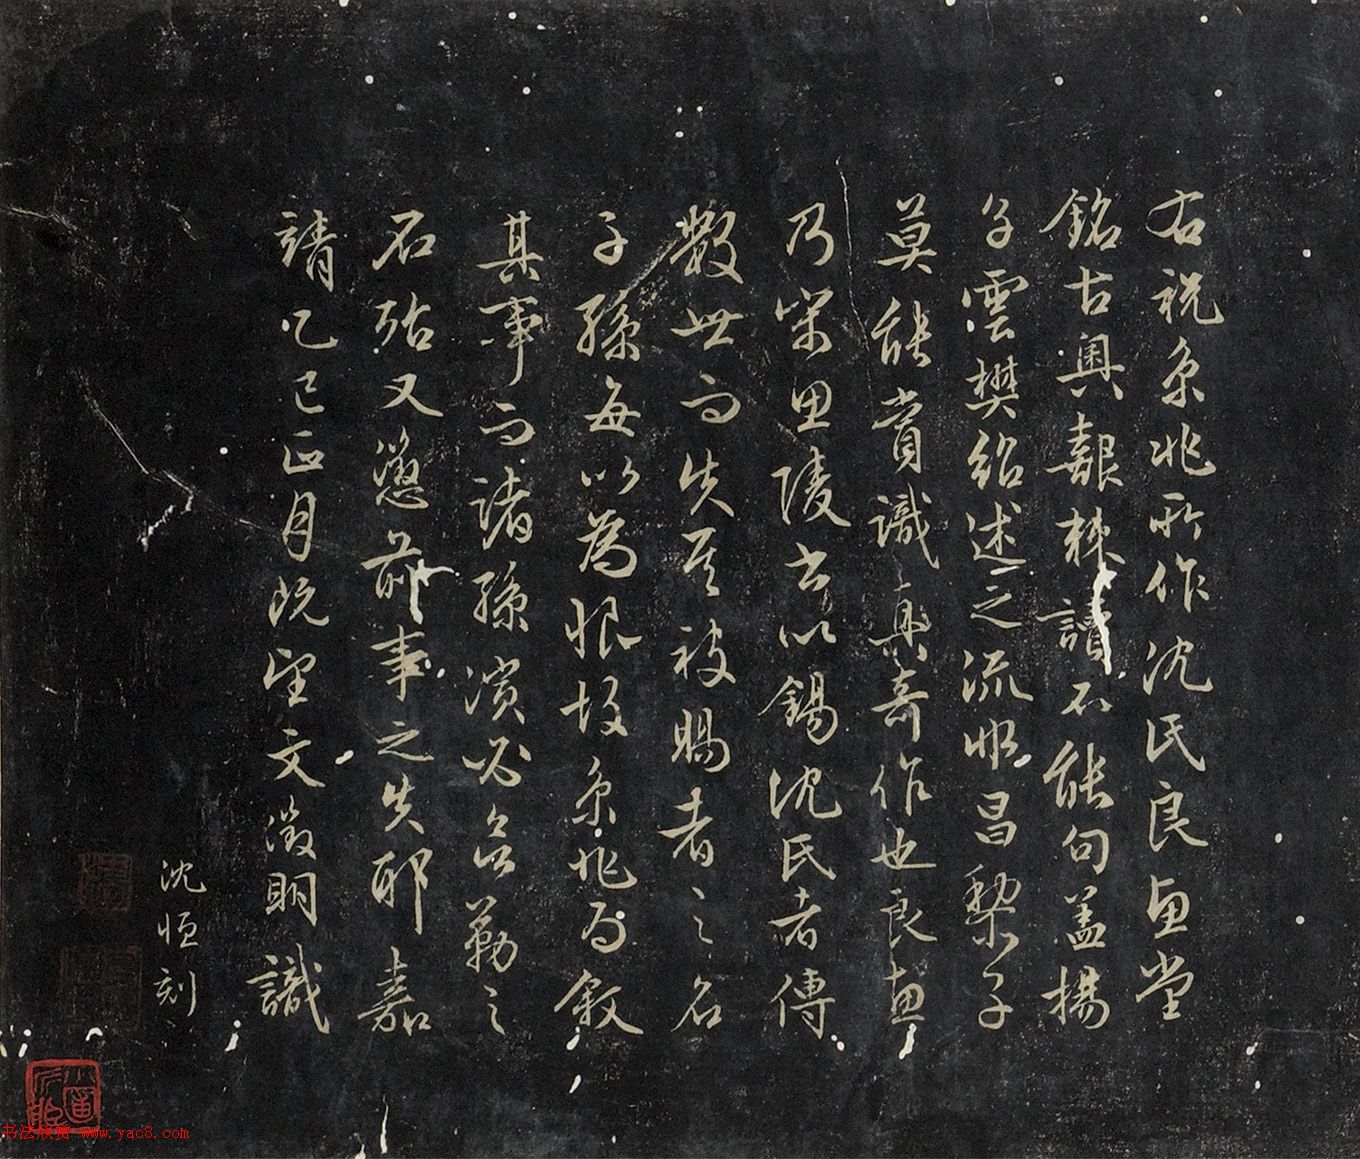 右祝京兆所作沈氏良惠堂
銘古奧艱棘讀不能句蓋揚
子雲樊紹述之流惟昌黎子
莫能賞識真奇作也良惠
乃宋思陵書以錫沈氏者傳
數世而失其被賜者之名
子孫每以為恨故京兆為叙
其事而諸孫濱必欲勒之
石殆又懲前事之失耶嘉
靖乙巳正月既望文徵明識
沈恒刻
书法欣赏 www.yac8.com